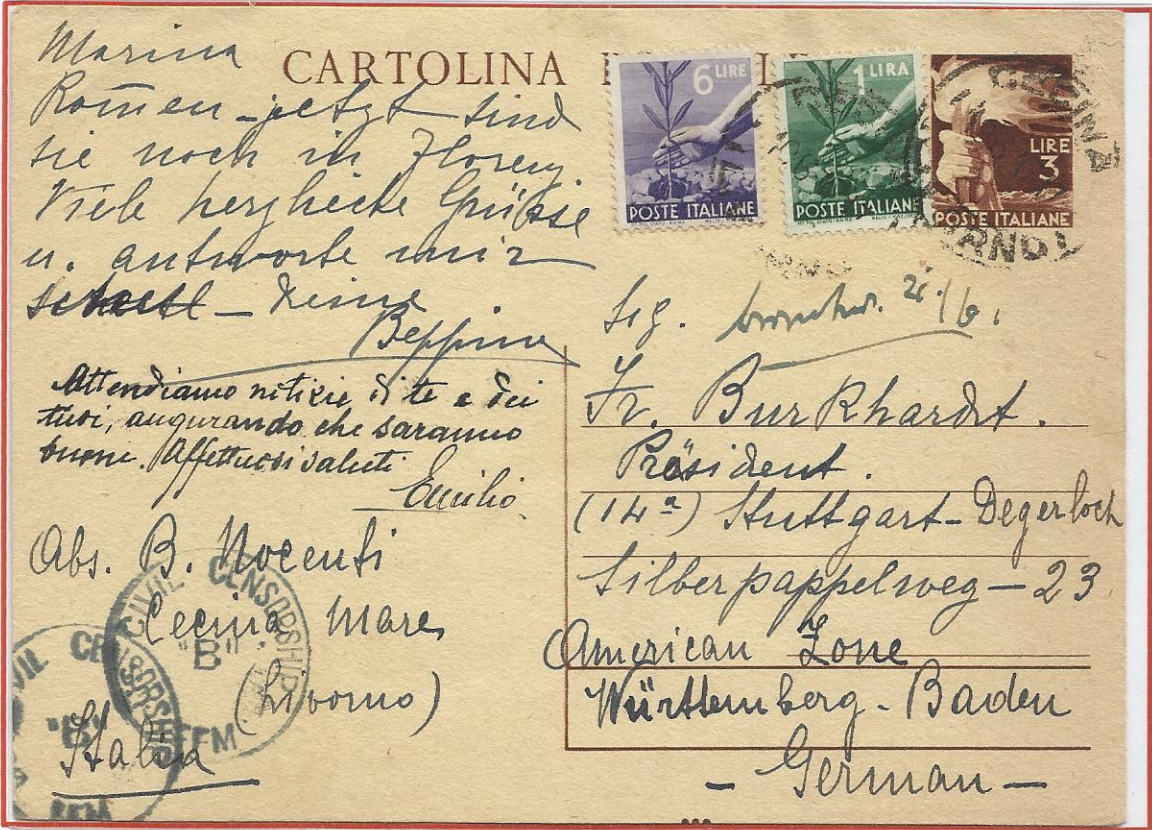 CARTOLINA
Marina
Romen - jetzt sind
sie noch in Florenz
Viele herzliche Grüsse
u. antworte mir
Deine
Beppina
Attendiamo notizie di te e dei
tuoi, augurando che saranno
buone. Affettuosi saluti
Emilio
Abs. B. Nocenti
Cecina Mare
(Livorno)
Italia
6 LIRE
POSTE ITALIANE
1 LIRA
POSTE ITALIANE
LIRE
3
POSTE ITALIANE
CECINA
Sig.
Fr. Burkhardt.
Präsident.
(14a) Stuttgart - Degerloch
Silberpappelweg - 23
American Zone
Württemberg - Baden
- German -
CIVIL CENSORSHIP
"B"